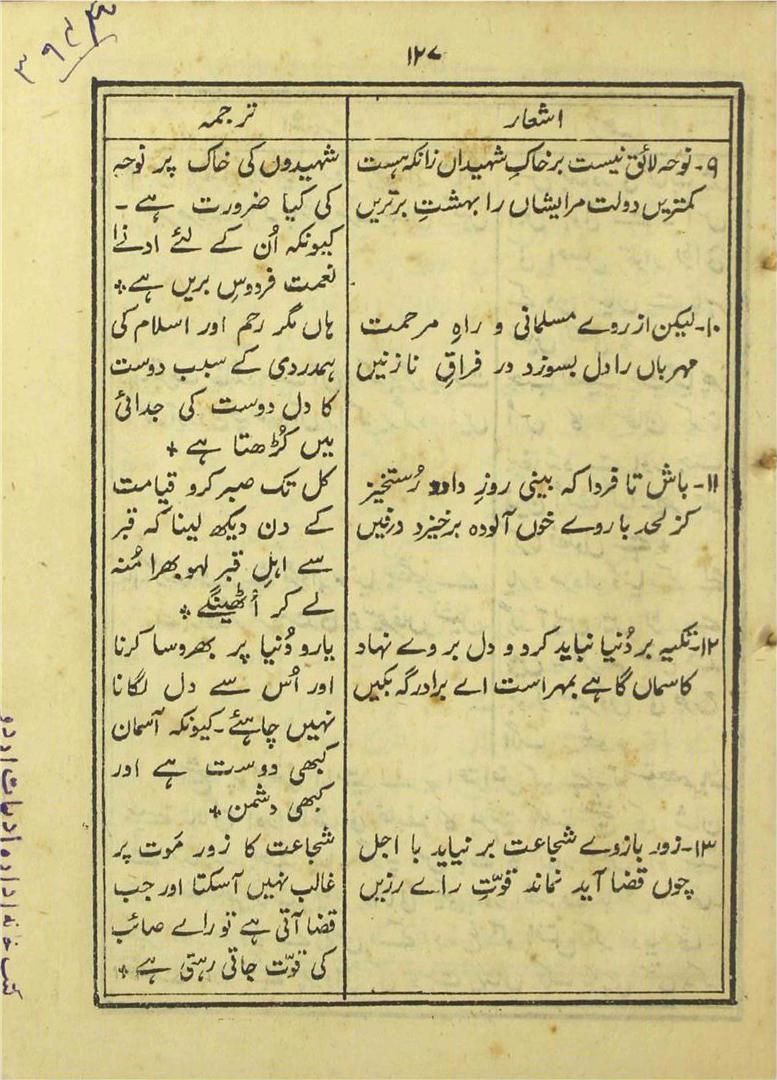 ۳۹۲۴
۱۲۷
اشعار
ترجمہ
۹- نوحہ لائق نیست بر خاکِ شہیداں زانکہ ہست
کمتریں دولت مرایشاں را بہشتِ برتریں
شہیدوں کی خاک پر نوحہ
کی کیا ضرورت ہے ۔
کیونکہ اُن کے لئے ادنےٰ
نعمت فردوسِ بریں ہے ٭
۱۰- لیکن از روے مسلمانی و راہِ مرحمت
مہرباں را دل بسوزد در فراقِ نازنیں
ہاں مگر رحم اور اسلام کی
ہمدردی کے سبب دوست
کا دل دوست کی جدائی
میں کُڑھتا ہے ٭
۱۱- باش تا فردا کہ بینی روزِ داد و رُستخیز
کز لحد با روے خوں آلودہ برخیزد دفیں
کل تک صبر کرو قیامت
کے دن دیکھ لینا کہ قبر
سے اہلِ قبر لہو بھرا مُنہ
لے کر اُٹھینگے ٭
۱۲- تکیہ بر دُنیا نباید کرد و دل بر وے نہاد
کاسماں گاہے بمہر است اے برادر گہ بکیں
یارو دُنیا پر بھروسا کرنا
اور اُس سے دل لگانا
نہیں چاہئے ۔ کیونکہ آسمان
کبھی دوست ہے اور
کبھی دشمن ٭
۱۳- زور بازوے شجاعت بر نیاید با اجل
چوں قضا آید نماند قوّتِ راے رزیں
شجاعت کا زور مَوت پر
غالب نہیں آسکتا اور جب
قضا آتی ہے تو راے صائب
کی قوّت جاتی رہتی ہے ٭
کتب خانہ ادارہ ادبیات اردو